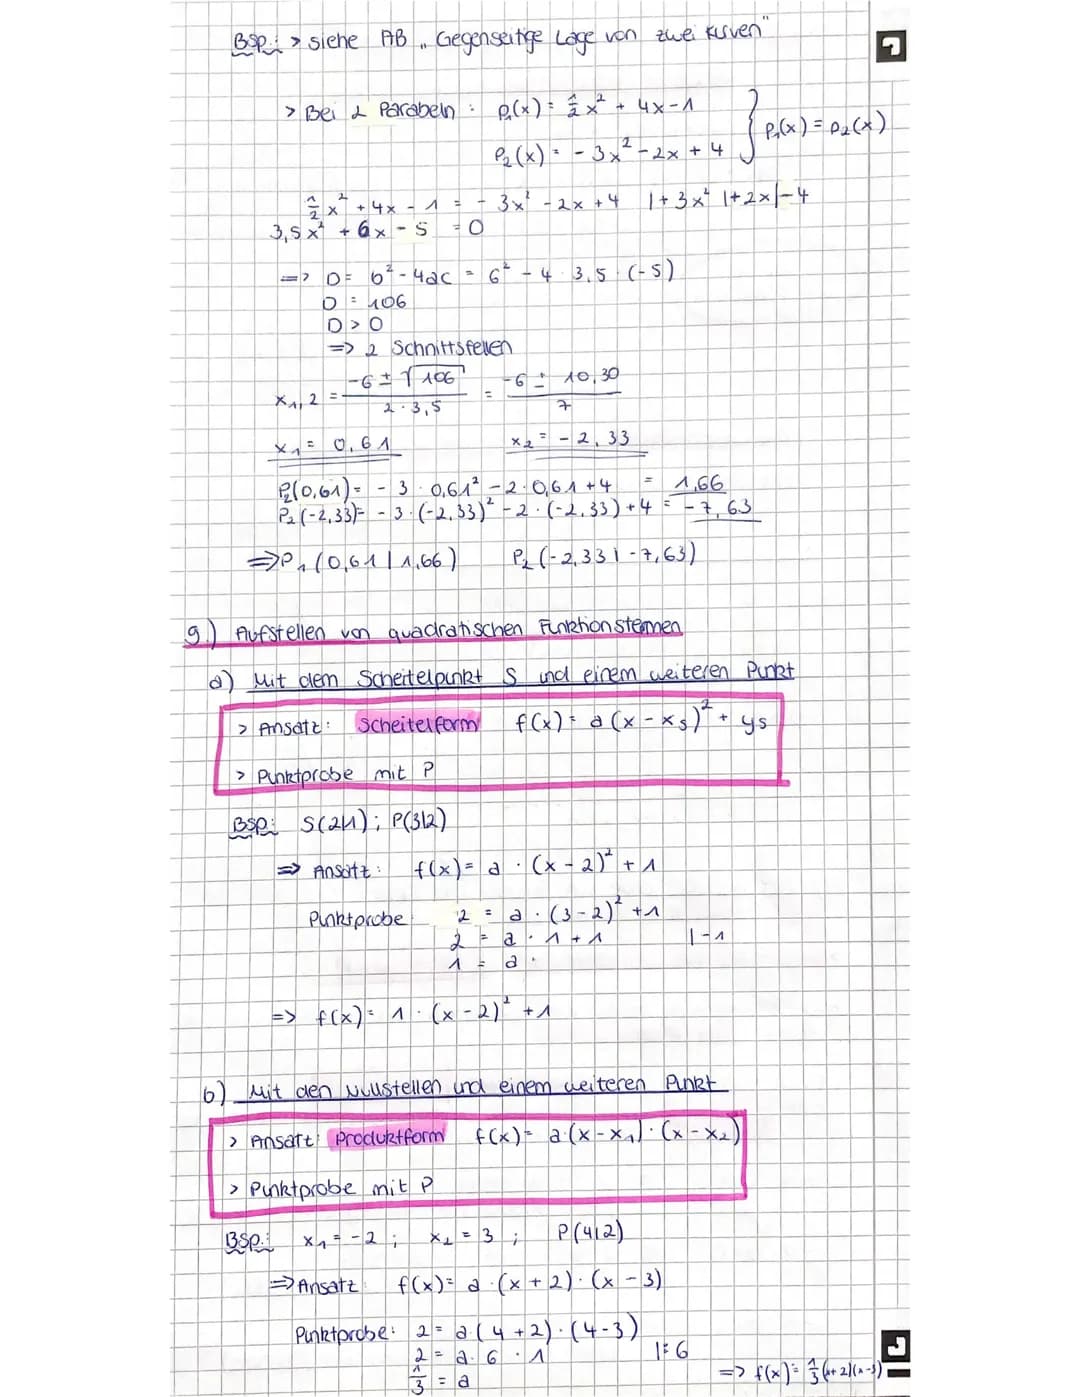 BSP.: > siehe AB „Gegenseitige Lage von zwei Kurven"
> Bei 2 Parabeln : p₁(x) = ½x² + 4x - 1
p₂(x) = - 3x² - 2x + 4 } p₁(x) = p₂(x)
½x² + 4x - 1 = - 3x² - 2x + 4 |+3x² |+2x |-4
3,5x² + 6x - 5 = 0
=> D = b² - 4ac = 6² - 4 · 3,5 · (-5)
D = 106
D > 0
=> 2 Schnittstellen
x₁,₂ = (-6 ± √106) / (2 · 3,5) = (-6 ± 10,30) / 7
x₁ = 0,61 x₂ = - 2,33
P₂(0,61) = - 3 · 0,61² - 2 · 0,61 + 4 = 1,66
P₂(-2,33) = - 3 · (-2,33)² - 2 · (-2,33) + 4 = - 7,63
=> P₁(0,61 | 1,66) P₂(-2,33 | -7,63)
9.) Aufstellen von quadratischen Funktionstermen
a) Mit dem Scheitelpunkt S und einem weiteren Punkt
> Ansatz: Scheitelform f(x) = a(x - xs)² + ys
> Punktprobe mit P
BSP: S(2|1); P(3|2)
=> Ansatz: f(x) = a · (x - 2)² + 1
Punktprobe 2 = a · (3 - 2)² + 1
2 = a · 1 + 1 |-1
1 = a
=> f(x) = 1 · (x - 2)² + 1
b) Mit den Nullstellen und einem weiteren Punkt
> Ansatz: Produktform f(x) = a·(x - x₁) · (x - x₂)
> Punktprobe mit P
BSP.: x₁ = -2 ; x₂ = 3 ; P(4|2)
=> Ansatz: f(x) = a · (x + 2) · (x - 3)
Punktprobe: 2 = a·(4 + 2) · (4 - 3)
2 = a · 6 · 1 |:6
⅓ = a => f(x) = ⅓(x+2)(x-3)